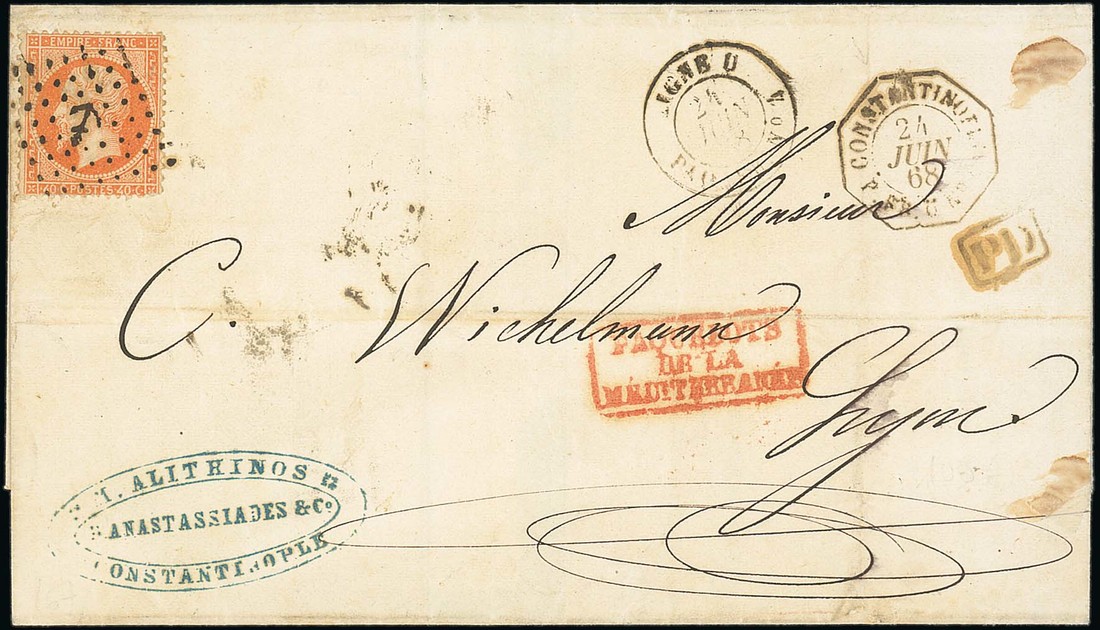 EMPIRE FRANC
40 C POSTES 40 C
LIGNE U
24
CONSTANTINOPLE
24
JUIN
68
PD
Monsieur
C. Wichelmann
Lyon.
PAQUEBOTS
DE LA
MÉDITERRANÉE
M. ALITHINOS
ANASTASSIADES & Co.
CONSTANTINOPLE